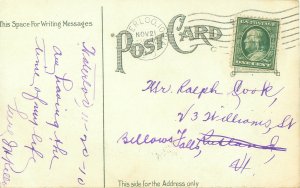 This Space For Writing Messages
NOV 21
POST CARD
ONE CENT
Waterloo 11-20-10
Am having the
time of my life
Mr. Ralph Cook,
73 Williams St
Bellows Falls, Rutland,
Vt.
This side for the Address only